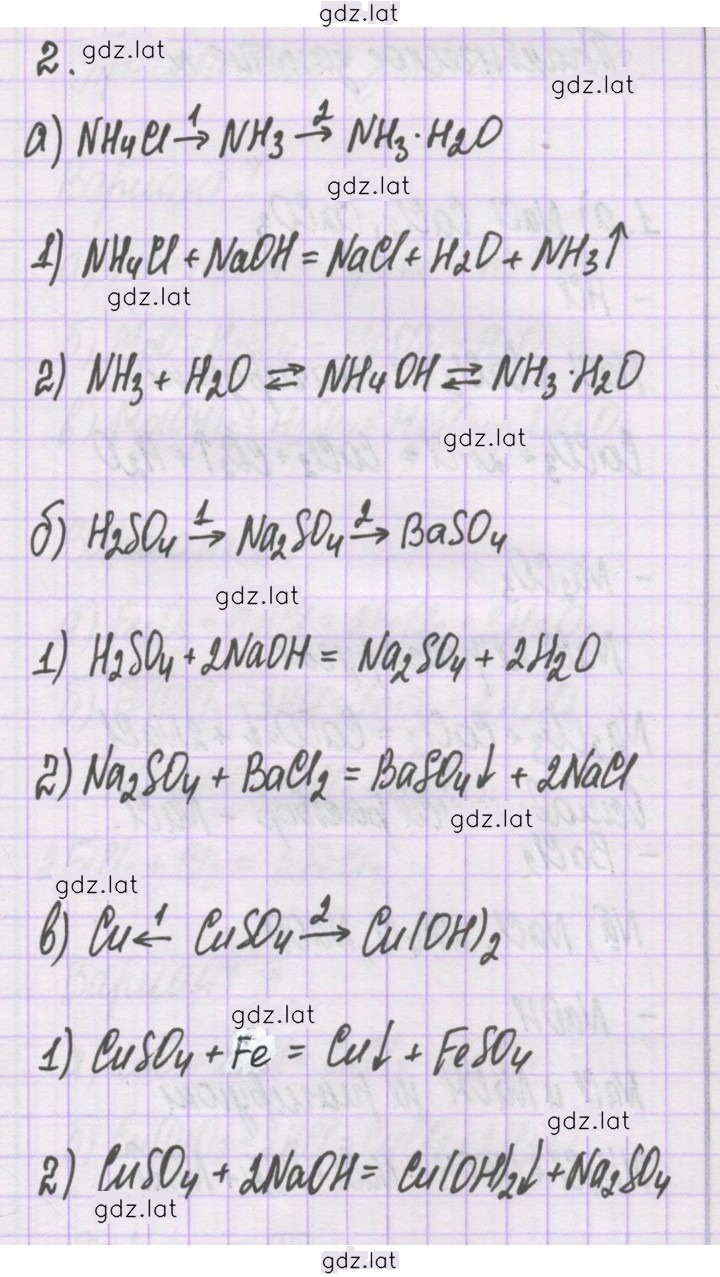 gdz.lat
2. gdz.lat
gdz.lat
а) NH₄Cl →¹ NH₃ →² NH₃·H₂O
gdz.lat
1) NH₄Cl + NaOH = NaCl + H₂O + NH₃↑
gdz.lat
2) NH₃ + H₂O ⇄ NH₄OH ⇄ NH₃·H₂O
gdz.lat
б) H₂SO₄ →¹ Na₂SO₄ →² BaSO₄
gdz.lat
1) H₂SO₄ + 2NaOH = Na₂SO₄ + 2H₂O
2) Na₂SO₄ + BaCl₂ = BaSO₄↓ + 2NaCl
gdz.lat
gdz.lat
в) Cu ←¹ CuSO₄ →² Cu(OH)₂
gdz.lat
1) CuSO₄ + Fe = Cu↓ + FeSO₄
gdz.lat
2) CuSO₄ + 2NaOH = Cu(OH)₂↓ + Na₂SO₄
gdz.lat
gdz.lat